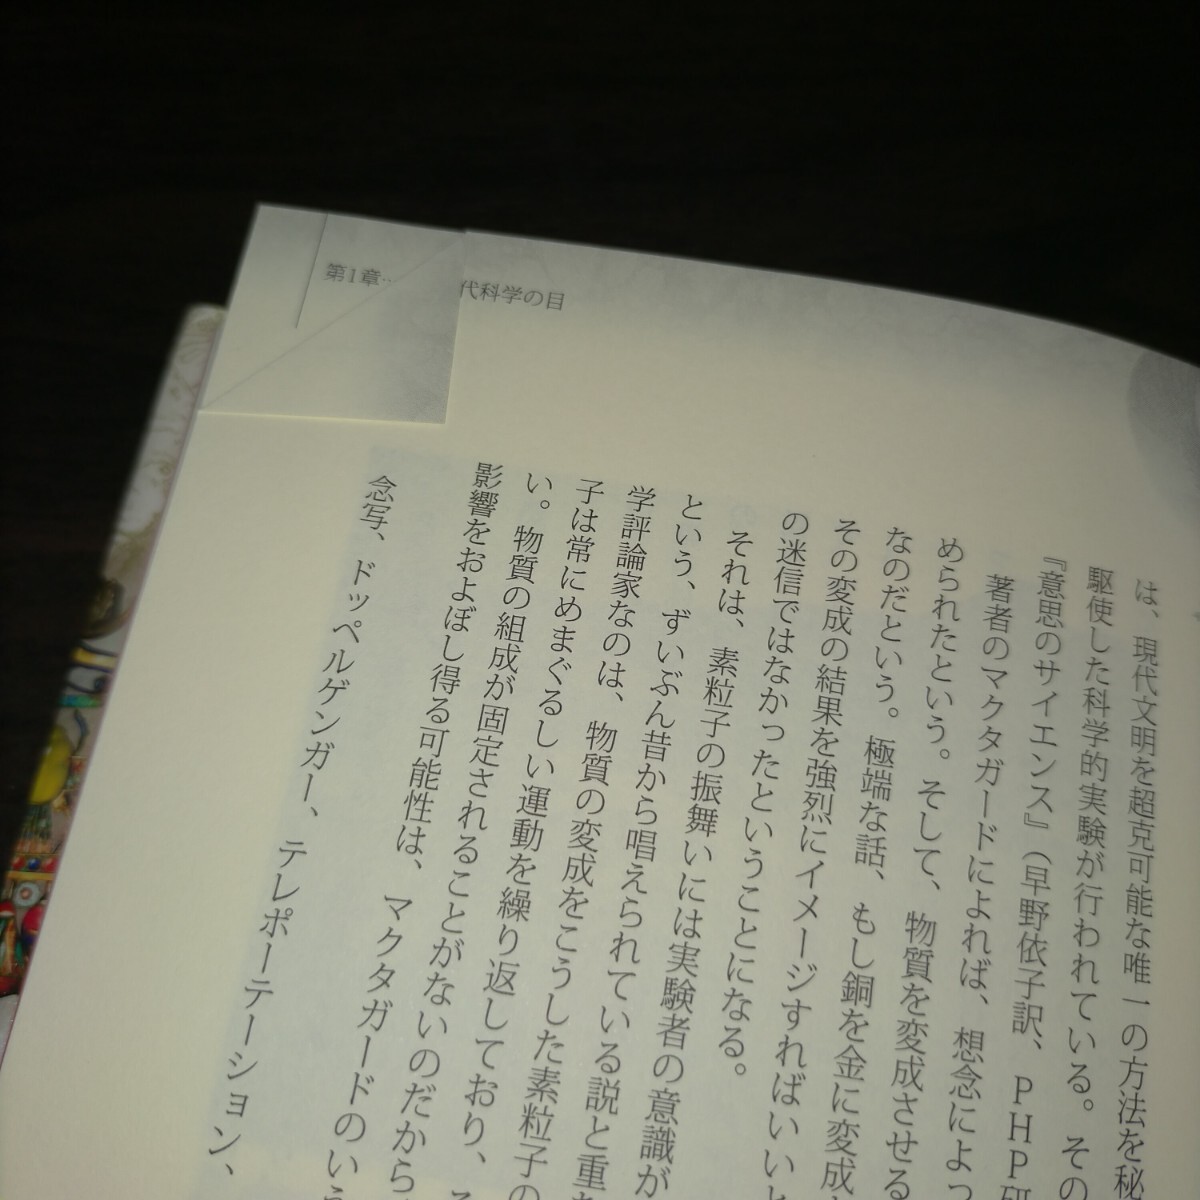 第1章…
代科学の目
は、現代文明を超克可能な唯一の方法を秘
駆使した科学的実験が行われている。その
『意思のサイエンス』（早野依子訳、PHP研
著者のマクタガードによれば、想念によっ
められたという。そして、物質を変成させる
なのだという。極端な話、もし銅を金に変成
その変成の結果を強烈にイメージすればいいと
の迷信ではなかったということになる。
それは、素粒子の振舞いには実験者の意識が
という、ずいぶん昔から唱えられている説と重な
学評論家なのは、物質の変成をこうした素粒子の
子は常にめまぐるしい運動を繰り返しており、そ
い。物質の組成が固定されることがないのだから
影響をおよぼし得る可能性は、マクタガードのいう
念写、ドッペルゲンガー、テレポーテーション、